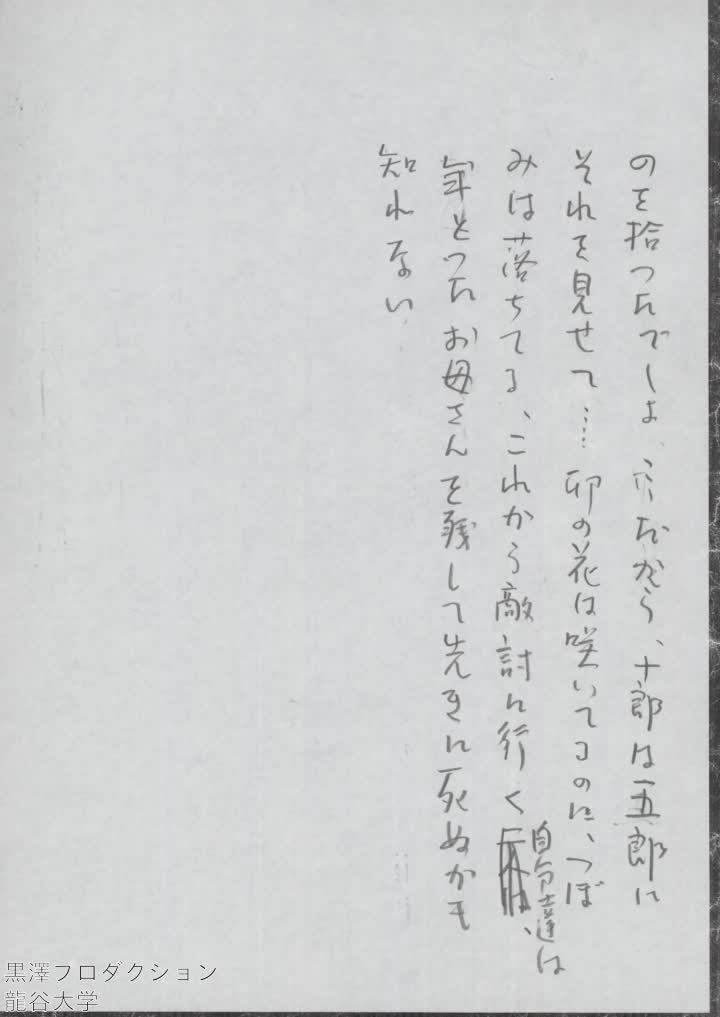 のを拾つたでしよ、だから、十郎は五郎に
それを見せて……卯の花は咲いてるのに、つぼ
みは落ちてる、これから敵討に行く自分達は、
年とつたお母さんを残して先きに死ぬかも
知れない
黒澤プロダクション
龍谷大学